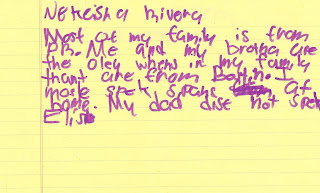 Nekeisha Rivera
Most of my family is from
P.R. Me and my brotha are
the oley whens in my family
thant are from Bostin. I
mosle spek Spanis at
home. My dad dise not spek
Elish